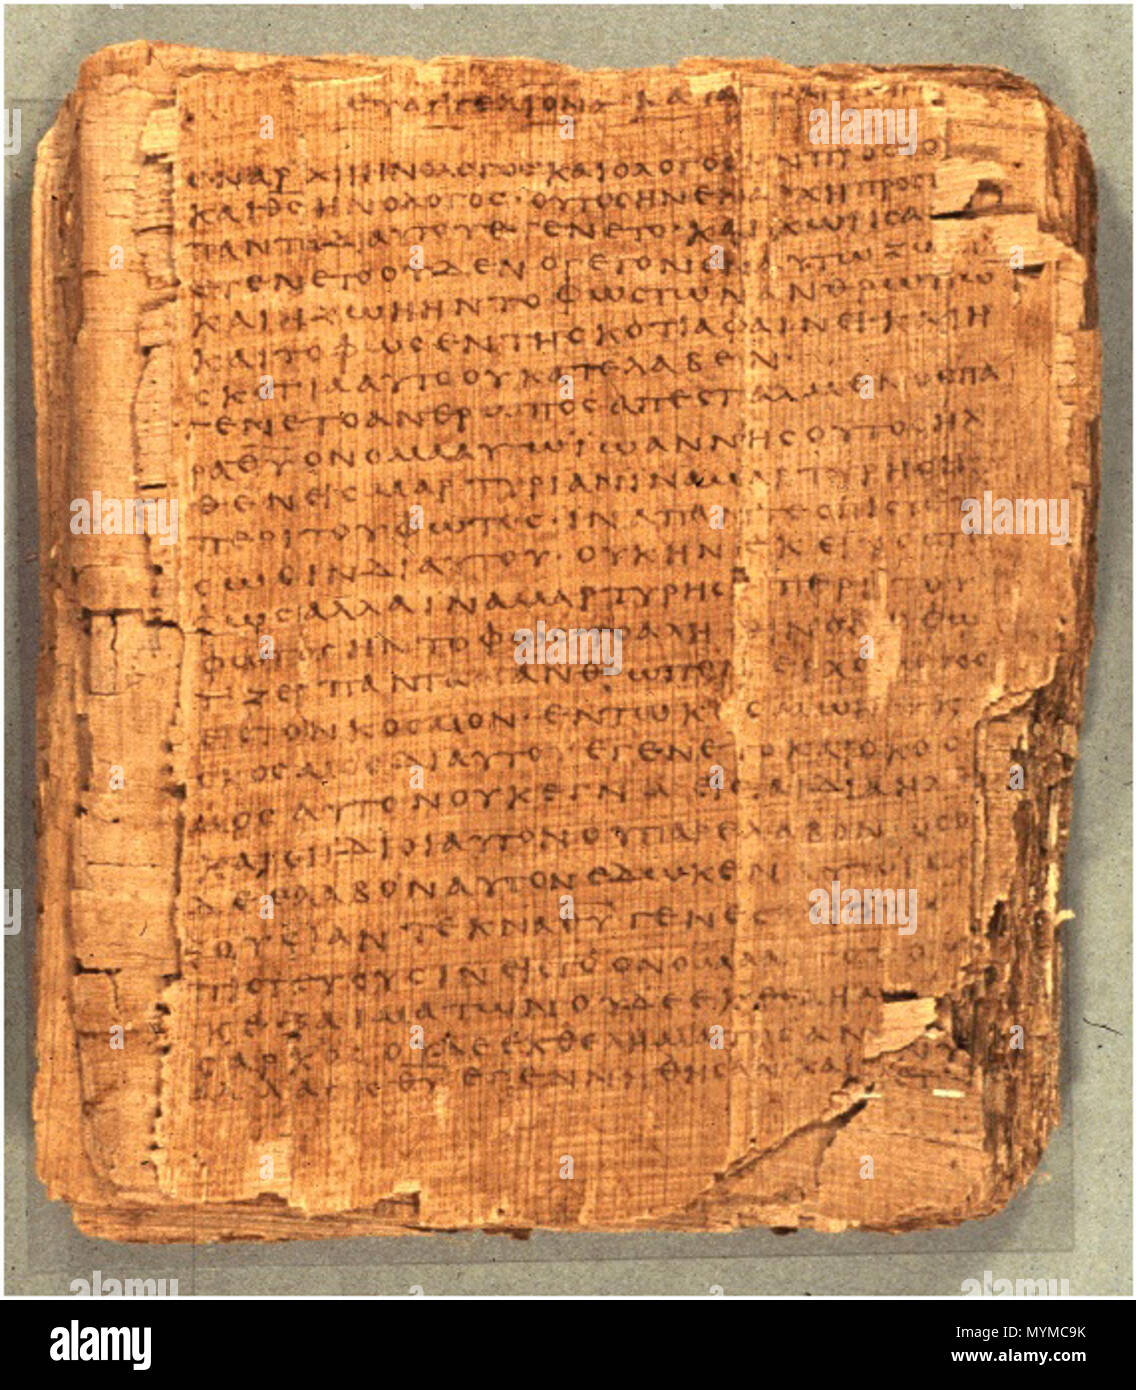 ΕΥΑΓΓΕΛΙΟΝ ΚΑΤΑ
ΕΝΑΡΧΗΗΝΟΛΟΓΟϹΚΑΙΟΛΟΓΟϹΗΝΠΡΟϹΤΟ
ΚΑΙΘ̅Ϲ̅ΗΝΟΛΟΓΟϹ·ΟΥΤΟϹΗΝΕΝΑΡΧΗΠΡΟϹΤ
ΠΑΝΤΑΔΙΑΥΤΟΥΕΓΕΝΕΤΟ·ΚΑΙΧΩΡΙϹΑ
ΕΓΕΝΕΤΟΟΥΔΕΝΟΓΕΓΟΝΕΝΕΝΑΥΤΩΖΩ
ΚΑΙΗΖΩΗΗΝΤΟΦΩϹΤΩΝΑΝΘΡΩΠΩ
ΚΑΙΤΟΦΩϹΕΝΤΗϹΚΟΤΙΑΦΑΙΝΕΙ·ΚΑΙΗ
ϹΚΟΤΙΑΑΥΤΟΟΥΚΑΤΕΛΑΒΕΝ·
ΕΓΕΝΕΤΟΑΝΘΡΩΠΟϹΑΠΕϹΤΑΛΜΕΝΟϹΠΑ
ΡΑΘ̅Υ̅ΟΝΟΜΑΑΥΤΩΙΩΑΝΝΗϹΟΥΤΟϹΗΛ
ΘΕΝΕΙϹΜΑΡΤΥΡΙΑΝΙΝΑΜΑΡΤΥΡΗϹΗ
ΠΕΡΙΤΟΥΦΩΤΟϹ·ΙΝΑΠΑΝΤΕϹΠΙϹΤΕΥ
ϹΩϹΙΝΔΙΑΥΤΟΥ·ΟΥΚΗΝΕΚΕΙΝΟϹΤΟ
ΦΩϹΑΛΛΑΙΝΑΜΑΡΤΥΡΗϹΗΠΕΡΙΤΟΥ
ΦΩΤΟϹΗΝΤΟΦΩϹΤΟΑΛΗΘΙΝΟΝΟΦΩ
ΤΙΖΕΙΠΑΝΤΑΑΝΘΡΩΠΟΝΕΡΧΟΜΕΝΟΝ
ΕΙϹΤΟΝΚΟϹΜΟΝ·ΕΝΤΩΚΟϹΜΩΗΝ
ΚΟϹΜΟϹΔΙΑΥΤΟΥΕΓΕΝΕΤΟΚΑΙΟΚΟϹ
ΜΟϹΑΥΤΟΝΟΥΚΕΓΝΩΕΙϹΤΑΙΔΙΑΗΛ
ΚΑΙΟΙΙΔΙΟΙΑΥΤΟΝΟΥΠΑΡΕΛΑΒΟΝΟϹΟ
ΔΕΕΛΑΒΟΝΑΥΤΟΝΕΔΩΚΕΝΑΥΤΟΙϹΕ
ΞΟΥϹΙΑΝΤΕΚΝΑΘ̅Υ̅ΓΕΝΕϹ
ΠΙϹΤΕΥΟΥϹΙΝΕΙϹΤΟΟΝΟΜΑΑΥΤΟΥ
ΚΕΞΑΙΜΑΤΩΝΟΥΔΕΕΚΘΕΛΗΜΑ
ϹΑΡΚΟϹΟΥΔΕΕΚΘΕΛΗΜΑΤΟϹΑΝ
ΑΛΛΑΕΚΘ̅Υ̅ΕΓΕΝΝΗΘΗϹΑΝΚΑΙ